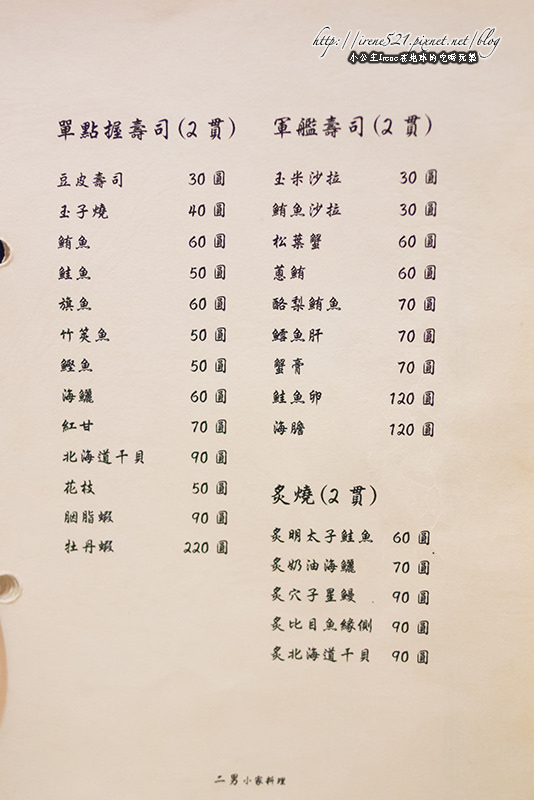 http://irene521.pixnet.net/blog
小公主Irene在地球的吃喝玩樂
單點握壽司(2 貫)
豆皮壽司 30 圓
玉子燒 40 圓
鮪魚 60 圓
鮭魚 50 圓
旗魚 60 圓
竹筴魚 50 圓
鰹魚 50 圓
海鱺 60 圓
紅甘 70 圓
北海道干貝 90 圓
花枝 50 圓
胭脂蝦 90 圓
牡丹蝦 220 圓
軍艦壽司(2 貫)
玉米沙拉 30 圓
鮪魚沙拉 30 圓
松葉蟹 60 圓
蔥鮪 60 圓
酪梨鮪魚 70 圓
鱈魚肝 70 圓
蟹膏 70 圓
鮭魚卵 120 圓
海膽 120 圓
炙燒(2 貫)
炙明太子鮭魚 60 圓
炙奶油海鱺 70 圓
炙穴子星鰻 90 圓
炙比目魚緣側 90 圓
炙北海道干貝 90 圓
二男小家料理